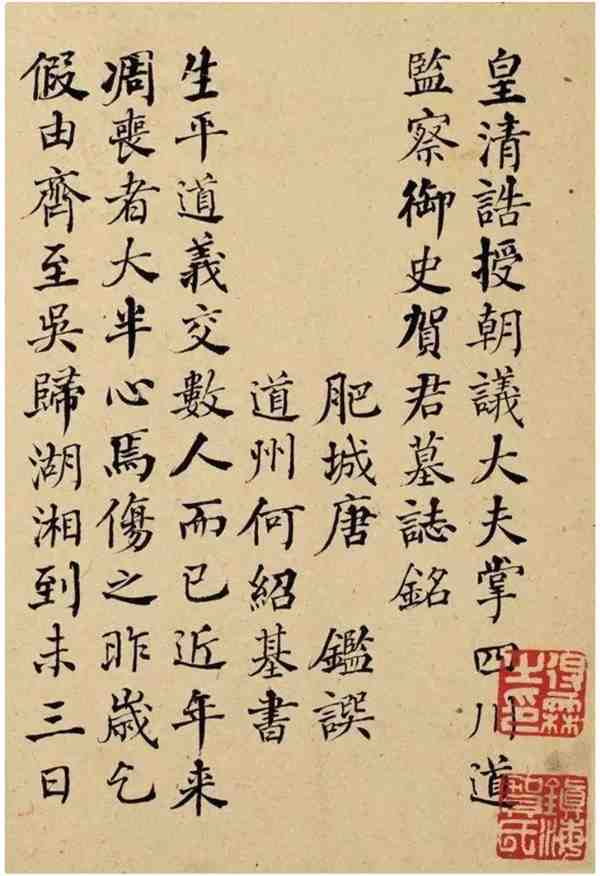 皇清誥授朝議大夫掌四川道
監察御史賀君墓誌銘
肥城唐 鑑譔
道州何紹基書
生平道義交數人而已近年来
凋喪者大半心焉傷之昨歲乞
假由齊至吳歸湖湘到未三日